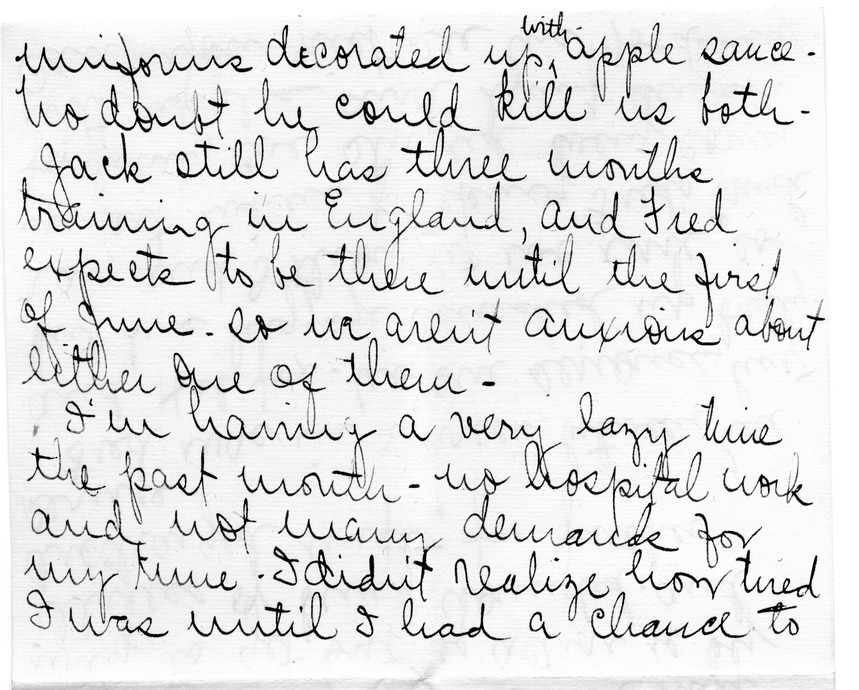 uniforms decorated up, with apple sauce -
No doubt he could kill us both -
Jack still has three months
training in England, and Fred
expects to be there until the first
of June - so we aren't anxious about
either one of them -
I'm having a very lazy time
the past month - no hospital work
and not many demands for
my time - I didn't realize how tired
I was until I had a chance to